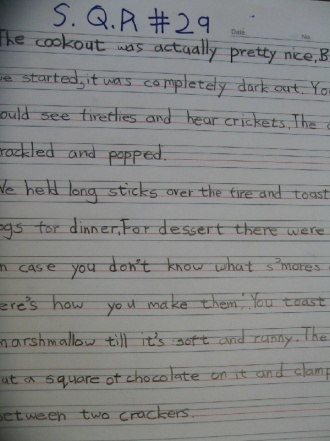 S.Q.R #29
Date No
The cookout was actually pretty nice, B
we started, it was completely dark out. You
could see fireflies and hear crickets, The c
crackled and popped.
We held long sticks over the fire and toast
ogs for dinner, For dessert there were
n case you don't know what s'mores
ere's how you make them: You toast
marshmallow till it's soft and runny. The
ut a square of chocolate on it and clamp
between two crackers.